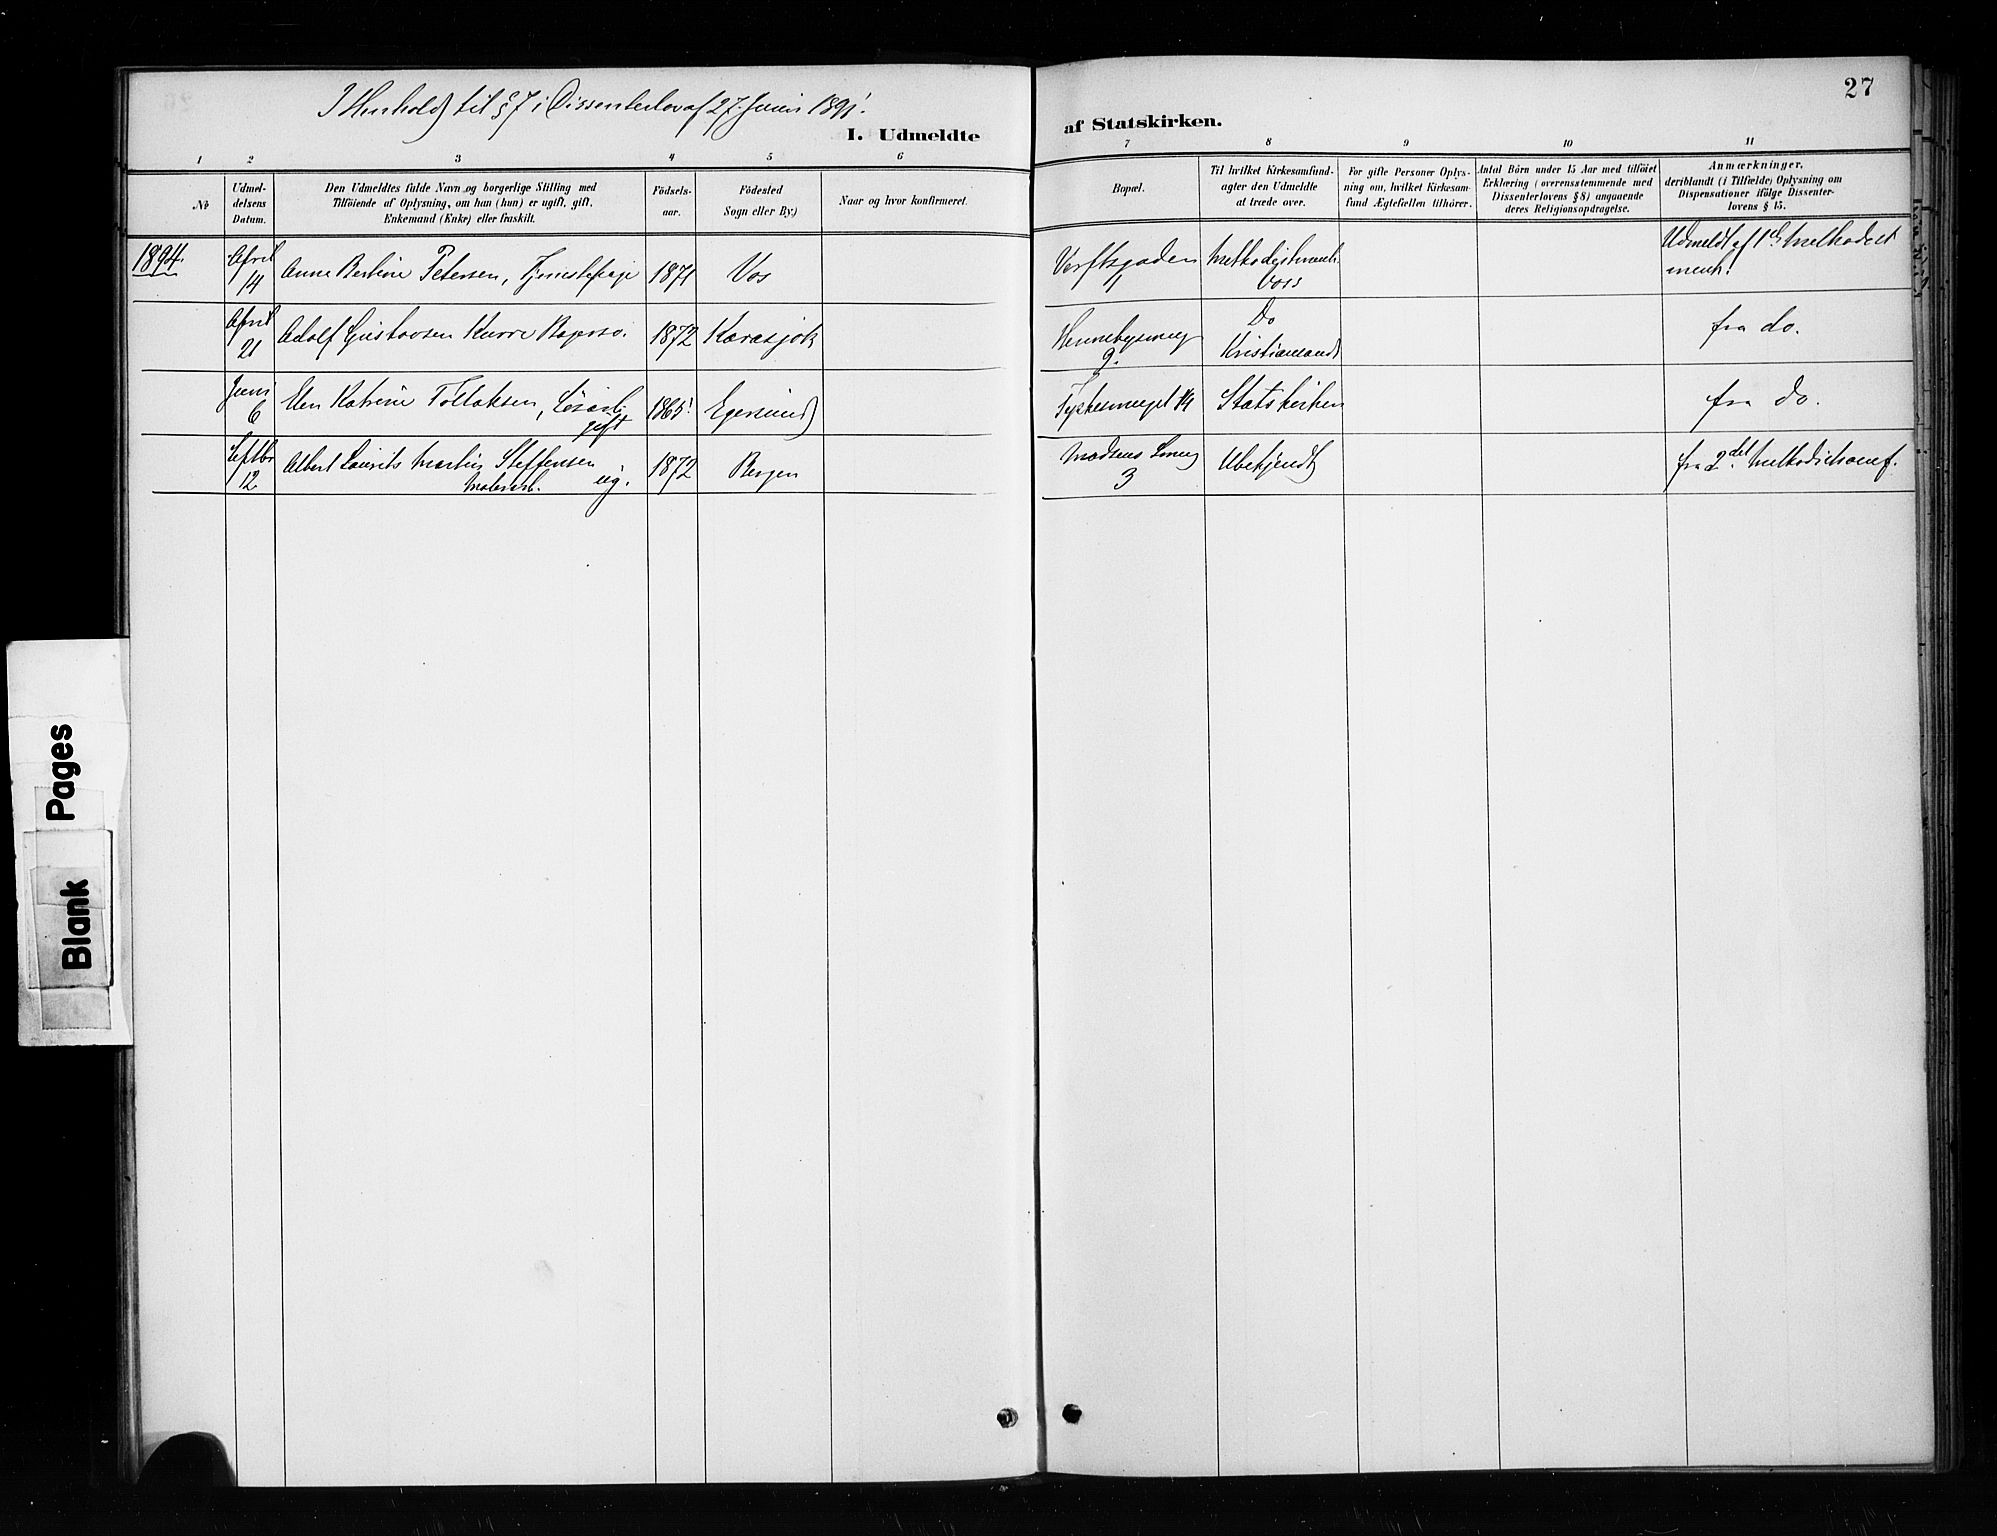 27
I Henhold til § 7 i Dissenterlov af 27. Juni 1891.
I. Udmeldte af Statskirken.
1 2 3 4 5 6 7 8 9 10 11
№
Udmel-
delsens
Datum.
Den Udmeldtes fulde Navn og borgerlige Stilling med
Tilföiende af Oplysning, om han (hun) er ugift, gift,
Enkemand (Enke) eller fraskilt.
Födsels-
aar.
Födested
Sogn eller By.)
Naar og hvor konfirmeret.
Bopæl.
Til hvilket Kirkesamfund-
agter den Udmeldte
at træde over.
For gifte Personer Oplys-
ning om, hvilket Kirkesam-
fund Ægtefællen tilhörer.
Antal Börn under 15 Aar med tilföiet
Erklæring (overensstemmende med
Dissenterlovens § 8) angaaende
deres Religionsopdragelse.
Anmærkninger,
deriblandt (i Tilfælde) Oplysning om
Dispensationer ifölge Dissenter-
lovens § 15.
1894.
April 14 Anne Bertine Petersen, Tjenestepige 1871 Vos Verftsgaden 11 Methodistmenh. Voss Udmeldt af 1ste Methodist menh.
April 21 Adolf Gustavsen Kurre 1872 Karasjok 9. Do Kristiansand fra do.
Juni 6 Elen Katrine Tollaksen, gift 1865 Egersund 14 Statskirken fra do.
Septbr 12 Albert Laurits Martin Steffensen ug. 1872 Bergen Madsens 3 Ubekjendt fra 2den Methodistmenf.
Blank Pages